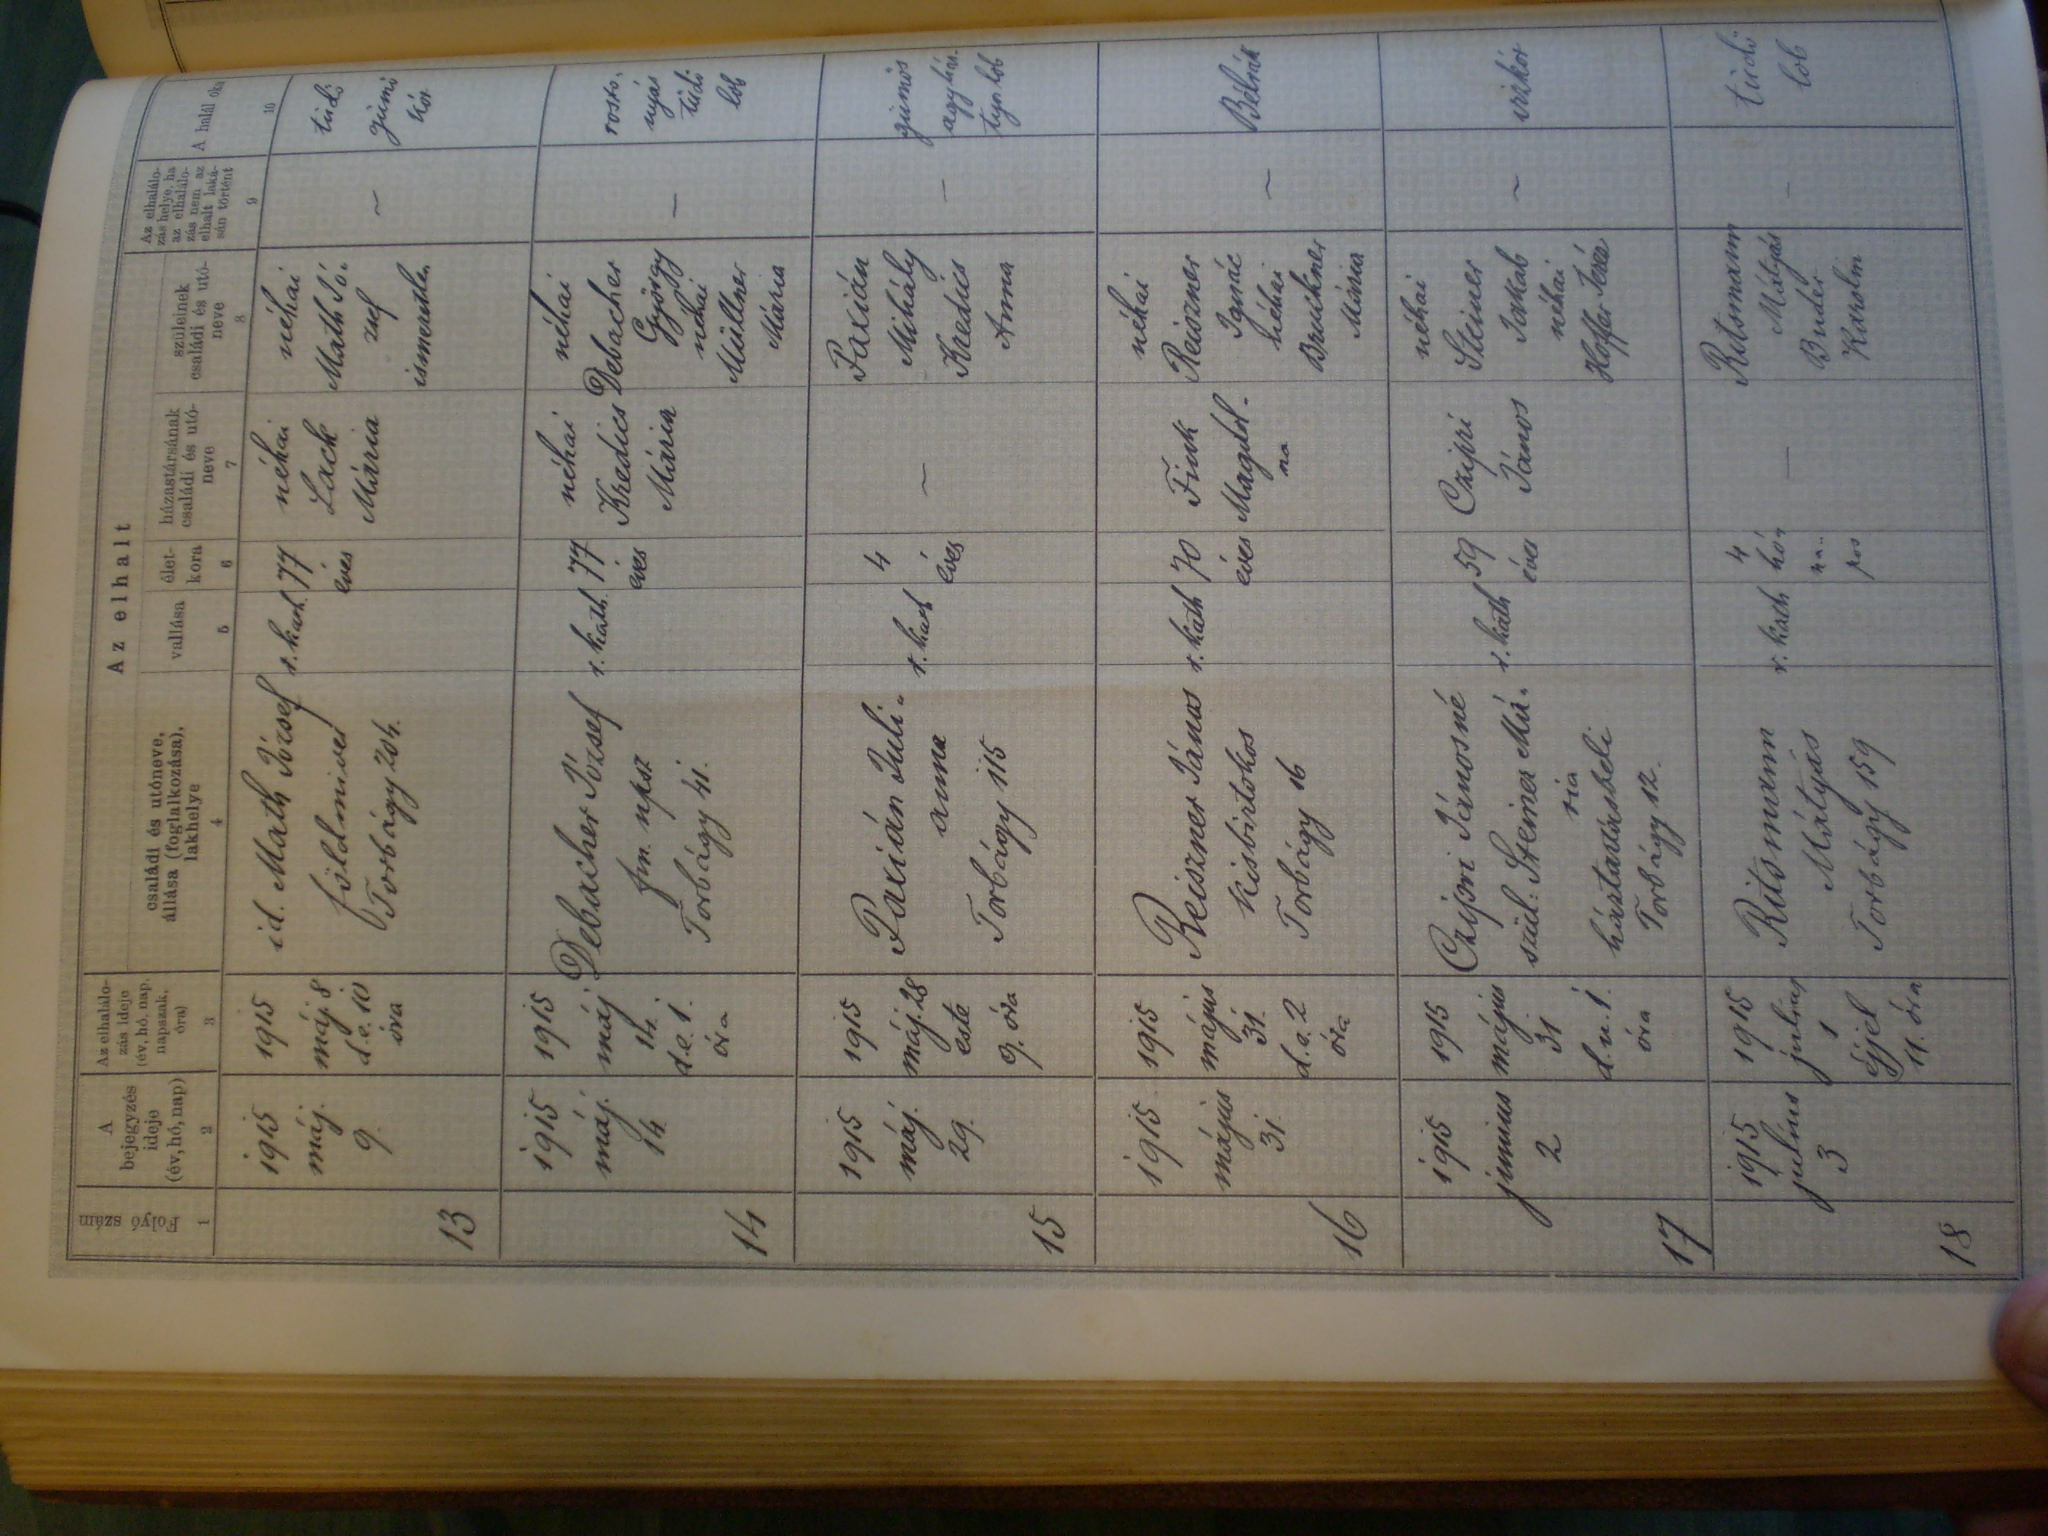 Az elhalt
Folyó szám
A
bejegyzés
ideje
(év, hó, nap)
Az elhalálo-
zás ideje
(év, hó, nap,
napszak,
óra)
családi és utóneve,
állása (foglalkozása),
lakhelye
vallása
élet-
kora
házastársának
családi és utó-
neve
szüleinek
családi és utó-
neve
Az elhalálo-
zás helye, ha
az elhalálo-
zás nem az
elhalt laká-
sán történt
A halál oka
1
2
3
4
5
6
7
8
9
10
13
1915
máj.
9.
1915
máj. 8
d.e. 10
óra
id. Math József
földmives
Torbágy 204.
r. kath.
77
éves
néhai
Lack
Mária
néhai
Math Jó-
zsef
~
tüdő
gümő
kór
14
1915
máj.
14.
1915
máj.
14.
d.e. 1.
óra
Debacher József
fm. npsz
Torbágy 41.
r. kath.
77
éves
néhai
Kredics
Mária
néhai
Debacher
György
néhai
Müllner
Mária
—
tüdő
lob
15
1915
máj.
29.
1915
máj. 28
este
9. óra
Paxián Juli-
anna
Torbágy 115
r. kath
4
éves
~
Paxián
Mihály
Kredics
Anna
—
gümős
agyhár-
tya lob
16
1915
május
31.
1915
május
31.
d.e. 2
óra
Reiszner János
kisbirtokos
Torbágy 16
r. kath
70
éves
Fink
Magdol-
na
néhai
Reiszner
Ignác
néhai
Bruckner
Mária
~
Bélrák
17
1915
junius
2
1915
május
31
d.u. 1.
óra
Czipri Jánosné
szül: Steiner Má-
ria
háztartásbeli
Torbágy 12.
r. kath
59
éves
Czipri
János
néhai
Steiner
Jakab
néhai
Hoffer Teréz
~
vízkór
18
1915
julius
3
1915
julius
1
éjjel
11. óra
Ritsmann
Mátyás
Torbágy 159
r. kath
4
hó-
na-
pos
—
Ritsmann
Mátyás
Binder
Karolin
—
tüdő
lob